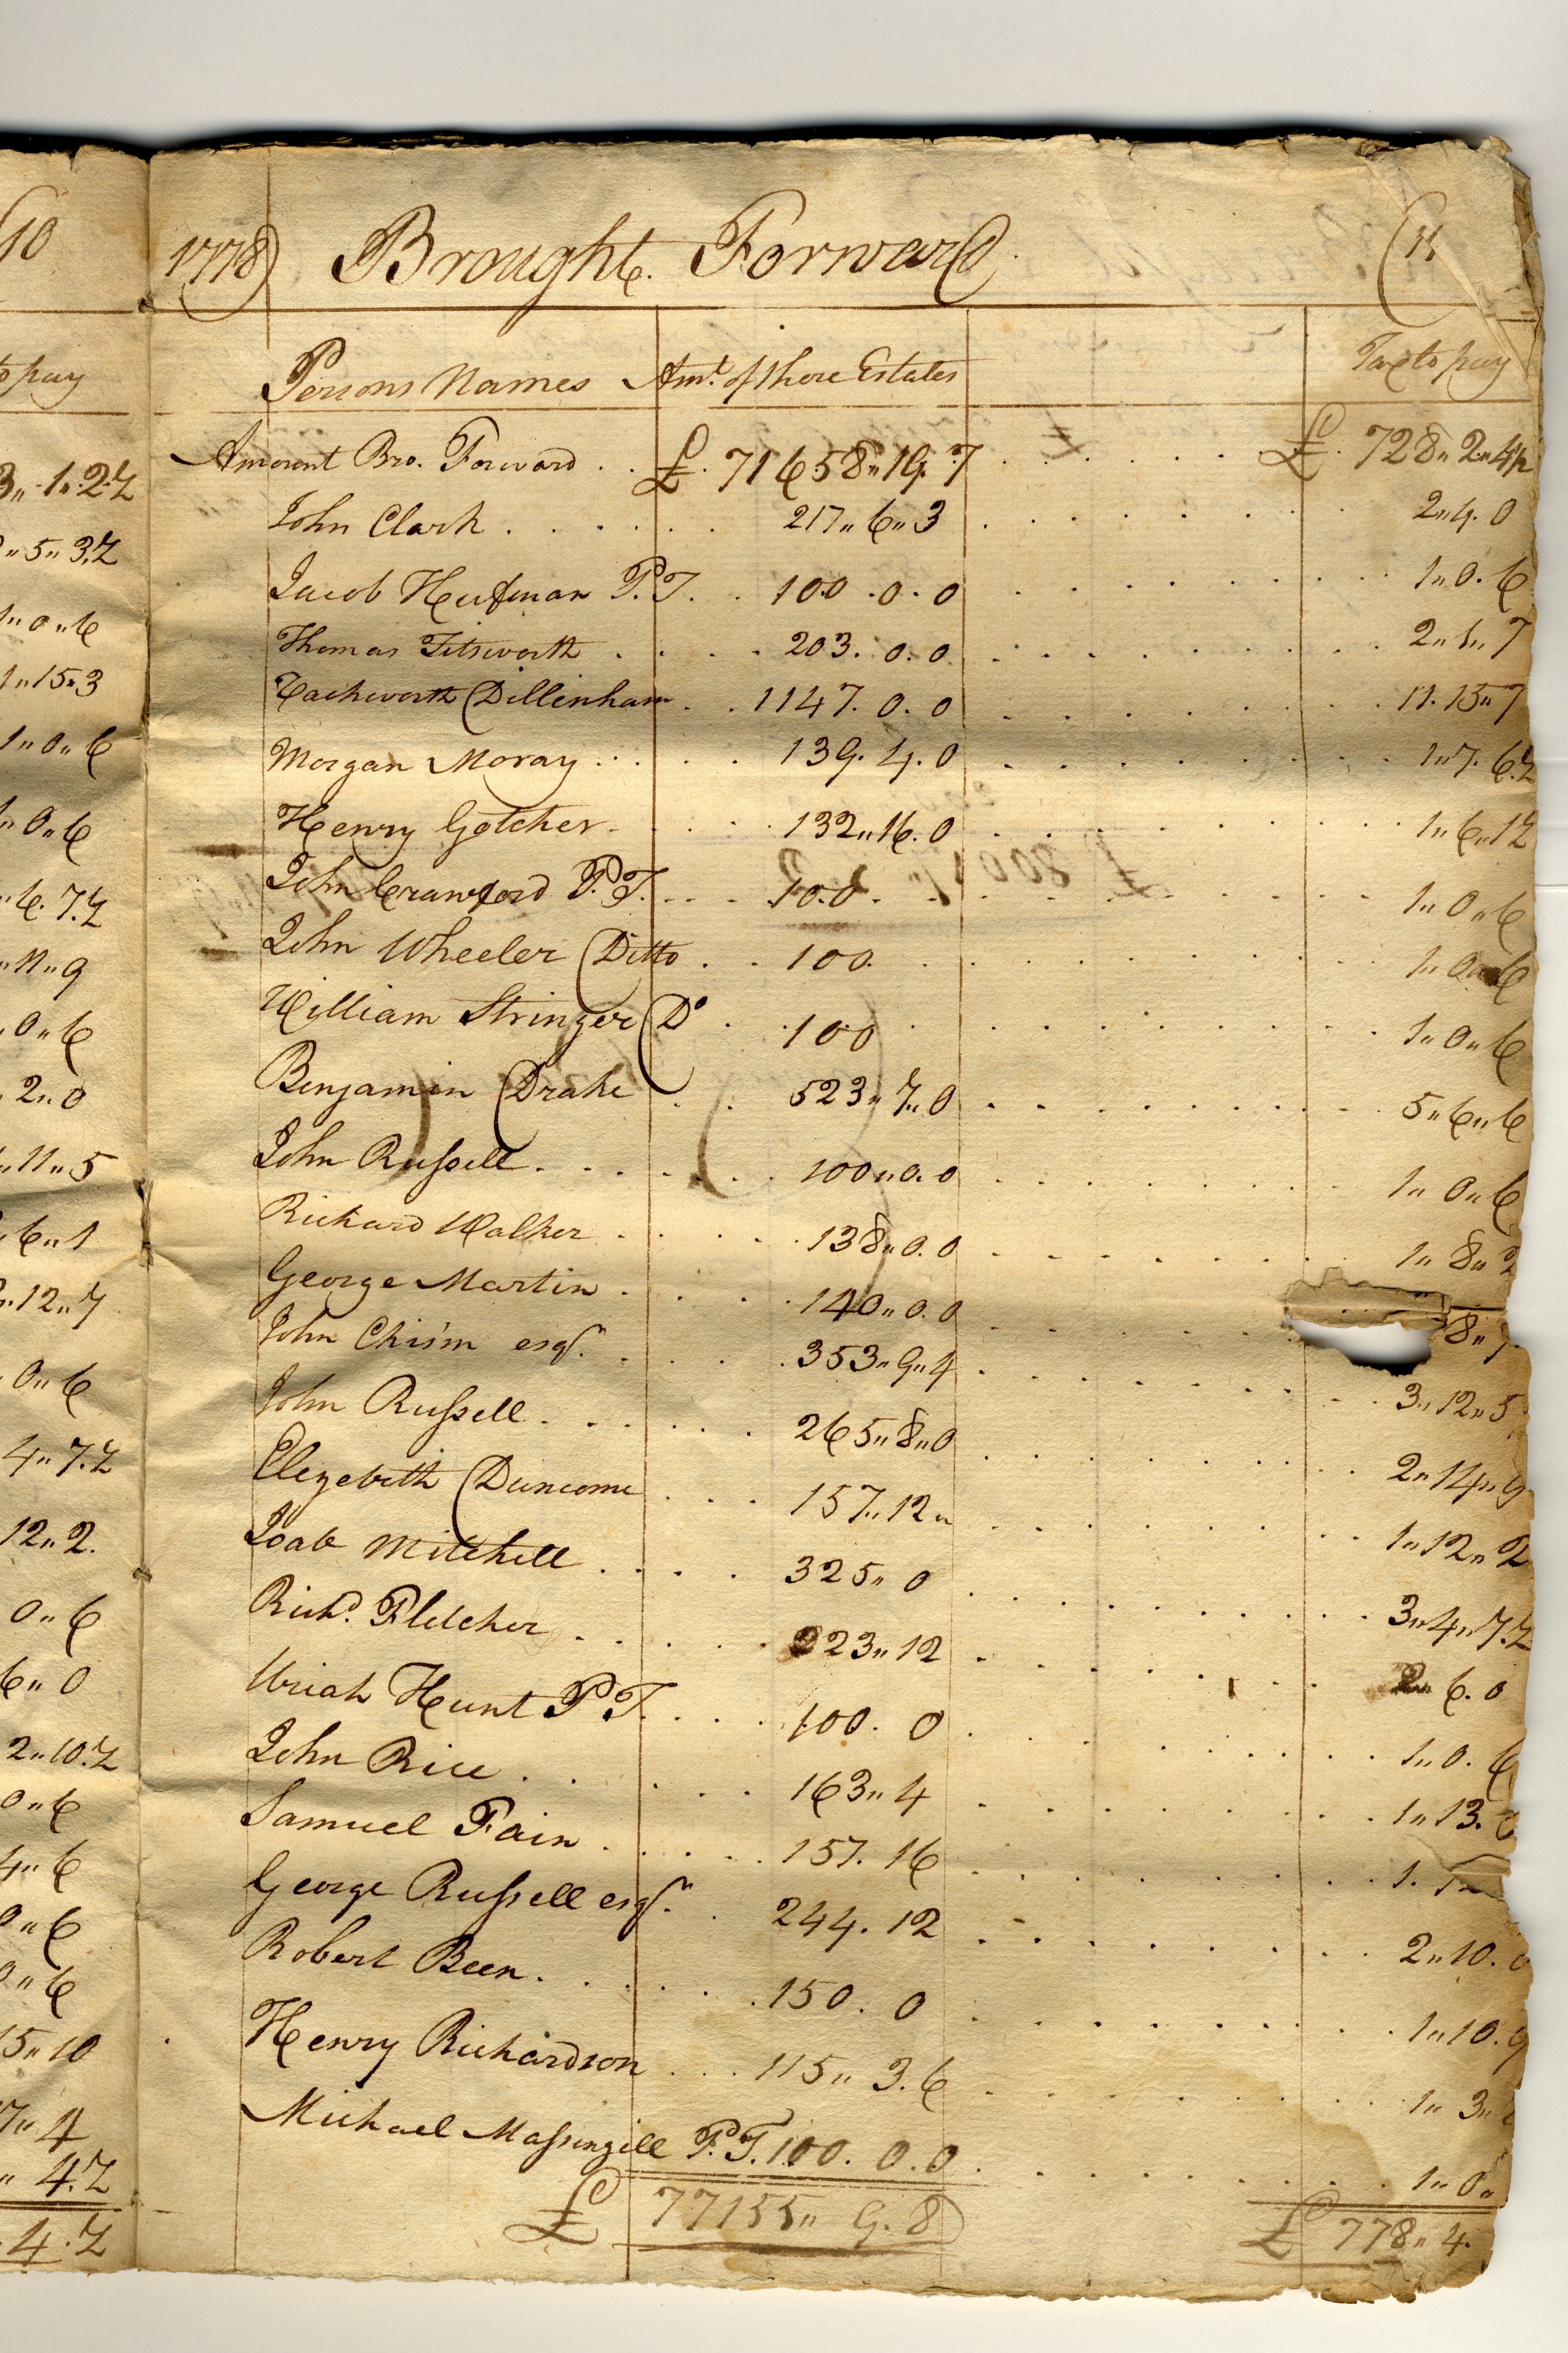 (10
to pay
3,, 1,, 2.Z
,, 5,, 3.Z
1,, 0,, 6
1,, 15,, 3
1,, 0,, 6
,, 0,, 6
,, 6. 7.Z
,, 11,, 9
,, 0,, 6
2,, 0
,, 11,, 5
6,, 1
,, 12,, 7
0,, 6
4,, 7.Z
12,, 2.
0,, 6
6,, 0
2,, 10.Z
0,, 6
4,, 6
0,, 6
0,, 6
15,, 10
7,, 4
,, 4.Z
. 4.Z
1778) Brought Forward (11
Persons Names Amt. of there Estates Tax to pay
Amount Bro. Forward . . £. 71658,, 19. 7 £. 728,, 2,, 4½
John Clark 217,, 6,, 3 2,, 4. 0
Jacob Hufman P. T. 100. 0. 0 1,, 0. 6
Thomas Titsworth 203. 0. 0 2,, 1,, 7
Vachworth Dillinham 1147. 0. 0 11. 15,, 7
Morgan Moray 139. 4. 0 1,, 7. 6.Z
Henry Gotcher 132,, 16. 0 1,, 6,, 1Z
John Crawford P. T. 100. 1,, 0,, 6
John Wheeler Ditto 100. 1,, 0,, 6
William Stringer Do 100 1,, 0,, 6
Benjamin Drake 523,, 7,, 0 5,, 6,, 6
John Russell 100,, 0. 0 1,, 0,, 6
Richard Walker 138,, 0. 0 1,, 8,, 2
George Martin 140,, 0. 0 8,, 7
John Chisim esqr. 353,, 9,, 4 3,, 12,, 5
John Russell 265,, 8,, 0 2,, 14,, 9
Elezebeth Duncome 157,, 12,, 1,, 12,, 2
Joab Mitchell 325,, 0 3,, 4,, 7.Z
Richd. Fletcher 223,, 12 2,, 6. 0
Uriah Hunt P T. 100. 0 1,, 0. 6
John Rice 163,, 4 1,, 13.
Samuel Fain 157. 16 1.
George Russell esqr. 244. 12 2,, 10. 0
Robert Been 150. 0 1,, 10. 9
Henry Richardson 115,, 3. 6 1,, 3,,
Michael Massingill P. T. 100. 0. 0 1,, 0,,
£ 77155,, 9. 8 £ 778,, 4.